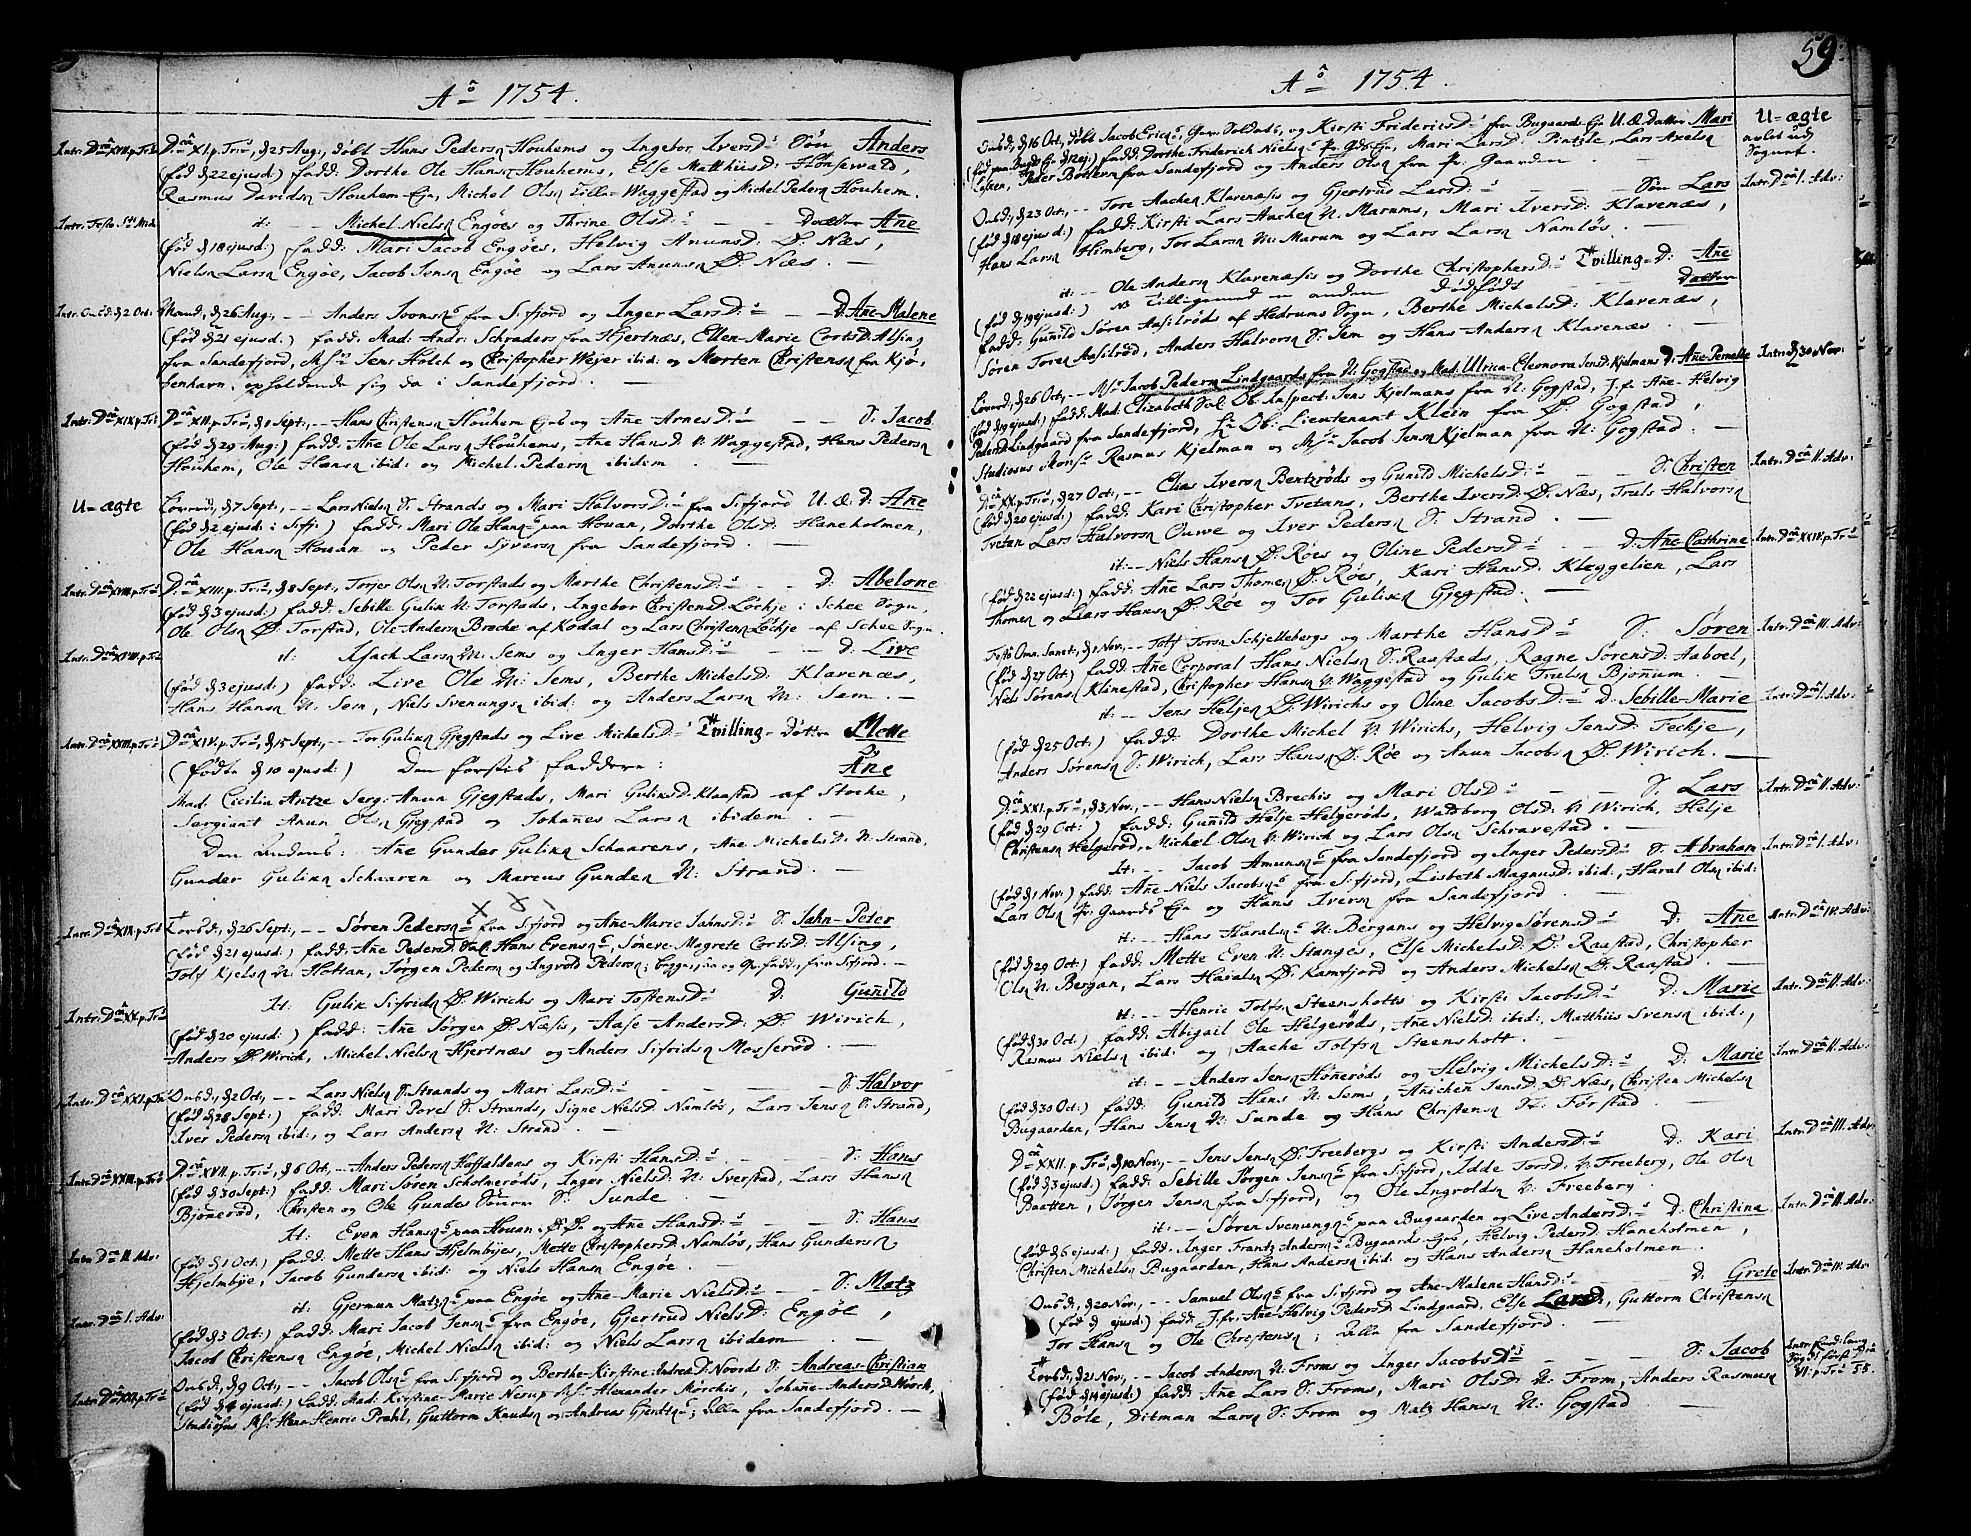 Aô 1754.
Intr. Dcâ XVII. p. Tr:
D:câ XI. p. Tri:, d. 25 Aug:, døbt Hans Pedersn Houhems og Ingebor IversD:s Søn Anders
(fød d. 22 ejusd:) fadd: Dorthe Ole Hansn Houhems, Else MatthiisD: Hønsevald,
Rasmus Davidsn Houhem-Eje, Michel Olsn Lille Waggestad og Michel Pedersn Houhem.
Intr. Festo Sti Mich
it: -- Michel Nielsn Engøes og Thrine OlsD:s -- Datter Añe
(fød d. 18 ejusd:) fadd: Mari Jacob Engøes, Helvig AnunsD: Ø. Næs,
Nielsn Larsn Engøe, Jacob Jensn Engøe og Lars Anunsn Ø. Næs. --
Intr. Onsd: d. 2 Oct:
Mand:, d. 26 Aug:, -- Anders Ivonsn fra S:fjord og Inger LarsD:s -- D: Añe-Malene
(fød d. 21 ejusd:) fadd: Mad: Andr: Schraders fra Hjertnæs, Ellen-Marie CortsD: Alsing
fra Sandefjord, Msr Jens Holch og Christopher Wejer ibid: og Morten Christensn fra Kjø-
benhavn, opholdende sig da i Sandefjord. --
Intr. Dcâ XIX. p. Tr:
D:câ XII. p. Tri:, d. 1 Sept:, -- Hans Christensn Houhem Ejes og Añe ArnesD:s S: Jacob
(fød d. 29 Aug:) fadd: Añe Ole Larsn Houhems, Añe HansD V. Waggestad, Hans Pedersn
Houhem, Ole Hansn ibid: og Michel Pedersn ibidem --
U-ægte
Løverd:, d. 7 Sept:, -- Lars Nielsn S. Strands og Mari HalvorsD:s fra S:fjord U. æ: D: Añe
(fød d. 2 ejusd: i S:fj:) fadd: Mari Ole Hansns paa Houan, Dorthe OlsD: Haneholmen,
Ole Hansn Houan og Peder Syversn fra Sandefjord. --
Intr. Dcâ XVIII. p. Tr:
D:câ XIII. p. Tri:, d. 8 Sept:, Torjer Olsn N: Torstads og Marthe ChristensD:s -- D: Abelone
(fød d. 3 ejusd:) fadd: Sebille Gulix N: Torstads, Ingebor ChristensD: Løckje i Schee Sogn,
Ole Olsn Ø: Torstad, Ole Andersn Breche af Kodal og Lars Christensn Løckje af Schee Sogn.
Intr. Dcâ XVIII. p. Tr:
it: Isach Larsn N. Sems og Inger HansD:s -- D: Live
(fød d. 3 ejusd:) fadd: Live Ole N: Sems, Berthe MichelsD: Klavenæs,
Hans Hansn N. Sem, Niels Svenungsn ibid: og Anders Larsn N: Sem. --
Intr. Dcâ XXIII. p. Tr:
D:câ XIV. p. Tri:, d. 15 Sept:, -- Tor Gulixn Gjegstads og Live MichelsD:s Tvilling-Døttre Mette
(fødte d. 10 ejusd:) Den førstes faddere: og Añe
Mad: Cicilia Antze Serg: Anun Gjegstads, Mari GulixsD: Klaastad af Stoche,
Sergiant Anun Olsn Gjegstad og Johañes Larsn ibidem --
Den Andens: Añe Gunder Gulixn Schaarens, Añe MichelsD. N. Strand,
Gunder Gulixn Schaaren og Marcus Gundersn N: Strand. --
Intr. Dcâ XIX. p. Tr:
Torsd:, d. 26 Sept:, -- Søren Pedersns fra S:fjord og Añe-Marie JahnsD:s S: Jahn-Peter
(fød d. 21 ejusd:) fadd: Añe PedersD Sal: Hans Evensns, Søneve-Magrete CortsD: Alsing,
Tolf Kjelsn N: Hottan, Jørgen Pedersn og Ingvold Pedersn; begge fra S:fjord. --
Intr: Dcâ XX. p. Tr:
It: Gulix Sifridsn Ø. Wirichs og Mari TostensD:s D: Guñild
(fød d. 20 ejusd:) fadd: Añe Jørgen Ø. Næsis, Aase AndersD: Ø: Wirich,
Anders Ø. Wirich, Michel Nielsn Hjertnæs og Anders Sifridsn Mosserød. --
Intr. Dcâ XXI. p. Tr:
Onsd:, d. 2 Oct:, -- Lars Nielsn S. Strands og Mari LarsD:s -- S: Halvor
(fød d. 28 Sept:) fadd: Mari Povel S. Strands, Signe NielsD: Namløs, Lars Jensn S: Strand,
Iver Pedersn ibid:, og Lars Andersn N: Strand. --
Intr. Dcâ XXIII. p. Tr:
D:câ XVII. p. Tri:, d. 6 Oct:, -- Anders Pedersn Hoffaldens og Kirsti HansD:s -- S: Hans
(fød d. 30 Sept:) fadd: Mari Søren Scholmerøds, Inger NielsD: N: Sverstad, Lars Hansn
Bjønerød, Christen og Ole Gundes Sønner S: Sunde --
Intr. Dcâ II. Adv:
It: Even Hansns paa Houan og Añe HansD:s -- S: Hans
(fød d. 1 Oct:) fadd: Mette Hans Hjelmbyes, Mette ChristophersD: Namløs, Hans Gundersn
Hjelmbye, Jacob Gundersn ibid: og Niels Hansn Engøe. --
Intr. Dcâ I. Adv:
it: Gjermun Matzns paa Engøe og Añe-Marie NielsD:s -- S: Matz
(fød d. 3 Oct:) fadd: Mari Jacob Jensns fra Engøe, Gjertrud NielsD: Engøe,
Jacob Christensn Engøe, Michel Nielsn ibid: og Niels Larsn ibidem --
Intr. Dcâ XXI. p. Tr:
Onsd:, d. 9 Oct:, -- Jacob Olsns fra S:fjord og Berthe-Kirstine AndreaD: Noords S: Andreas-Christian
(fød d. 4 ejusd:) fadd: Mad: Kirstine-Marie Nerup Msr Alexander Morchis, Johañe-AndersD: Mørch,
Studiosus Msr Hans Henric Prahl, Guttorm Knudsn og Andreas Gjertsns; Alla fra Sandefjord. --
Aô 1754.
59.
Onsd:, d. 16 Oct:, døbt Jacob Ericsns, Gev. Soldats, og Kirsti FridericsD:s fra Bugaards Eje U. Æ. Datter Mari
U-ægte
avlet uden
Sognet.
fadd: Dorthe Friderich Nielsns Pr. Gds Eje, Mari LarsD: Pintzle, Lars Axelsn
Peder Bortensn fra Sandefjord og Anders Olsn fra Pr. Gaarden. --
Onsd:, d. 23 Oct:, -- Tore Aachen Klavenæsis og Gjertrud LarsD:s -- Søn Lars
Intr: Dcâ I. Adv:
(fød d. 18 ejusd:) fadd: Kirsti Lars Aachen N. Marums, Mari IversD: Klavenæs,
Hans Larsn Himberg, Tor Larsn N: Marum og Lars Larsn Namløs. --
it: -- Ole Andersn Klavenæsis og Dorthe ChristophersD:s Tvilling-D: Añe
(fød d. 19 ejusd:) dødfødt Datter
fadd: Gunild Søren Aasilrøds af Hedrums Sogn, Berthe MichelsD: Klavenæs,
Søren Toresn Aasilrød, Anders Halvorsn S: Sem og Hans Andersn Klavenæs --
Løverd:, d. 26 Oct:, -- Msr Jacob Pedersn Lindgaards fra N: Gogstad og Mad: Ulrica-Eleonora JensD: Kjelmans D: Añe-Pernelle
Intr: d. 30 Nov:
(fød d. 19 ejusd:) fadd: Mad: Elizabeth Sal. Ob: Inspect: Jens Kjelmans fra N: Gogstad, J.f. Añe-Helvig
PedersD Lindgaard fra Sandefjord, Hr Ob: Lieutenant Klein fra Ø. Gogstad,
Studiosus Monsr Rasmus Kjelman og Msr Jacob Jensn Kjelman fra N: Gogstad. --
D:câ XX. p. Tri:, d. 27 Oct:, -- Elias Iversn Bentzrøds og Gunild MichelsD:s -- S: Christen
Intr: Dcâ II. Adv:
(fød d. 20 ejusd:) fadd: Kari Christopher Tvetans, Berthe IversD: Ø. Næs, Truls Halvorsn
Tvetan Lars Halvorsn Ouwe og Iver Pedersn S: Strand. --
it: -- Niels Hansn Ø: Røes og Oline PedersD:s -- D: Añe-Cathrine
Intr: Dcâ XXIV. p. Tr:
(fød d. 22 ejusd:) fadd: Añe Lars Thomesn Ø: Røes, Kari HansD: Klæggelien, Lars
Thomesn og Lars Hansn Ø: Røe og Tor Gulixn Gjegstad. --
Festo Omn. Sanct:, d. 1 Nov:, -- Tolf Torsn Schjellebergs og Marthe HansD:s S: Søren
Intr: Dcâ III. Adv:
(fød d. 27 Oct:) fadd: Añe Corporal Hans Nielsn S: Raastads, Ragne SørensD: Aaboel,
Niels Sørensn Klinestad, Christopher Hansn V. Waggestad og Gulix Trulsn Bjonum. --
it: -- Jens Heljesn Ø: Wirichs og Oline JacobsD:s D: Sebille-Marie
Intr: Dcâ I. Adv:
(fød d. 25 Oct:) fadd: Dorthe Michel V: Wirichs, Helvig JensD: Feckje,
Anders Sørensn S: Wirich, Lars Hansn Ø: Røe og Anun Jacobsn Ø: Wirich. --
D:câ XXI. p. Tri:, d. 3 Nov:, -- Hans Nielsn Brechis og Mari OlsD:s -- S: Lars
Intr: Dcâ II. Adv:
(fød d. 29 Oct:) fadd: Guñild Helje Helgerøds, Waldborg OlsD: V: Wirich, Helje
Christensn Helgerød, Michel Olsn V: Wirich og Lars Olsn Schravestad. --
It: -- Jacob Amunsns fra Sandefjord og Inger PedersD:s S: Abraham
Intr: Dcâ I. Adv:
(fød d. 1 Nov:) fadd: Añe Niels Jacobsns fra S:fjord, Lisbeth MagnusD: ibid:, Haral Olsn ibid:
Lars Olsn Pr. Gaards Eje og Hans Iversn fra Sandefjord --
it: -- Hans Haralsns N: Bergans og Helvig SørensD:s D: Añe
Intr: Dcâ IV. Adv:
(fød d. 29 Oct:) fadd: Mette Even N: Stanges, Else MichelsD: Ø: Raastad, Christopher
Olsn N: Bergan, Lars Haralsn Ø: Kamfjord og Anders Michelsn Ø: Raastad. --
it: -- Henric Tolfsn Steensholts og Kirsti JacobsD:s D: Marie
Intr: Dcâ II. Adv:
(fød d. 30 Oct:) fadd: Abigail Ole Helgerøds, Añe NielsD: ibid:, Matthiis Svensn ibid:,
Rasmus Nielsn ibid: og Aache Tolfsn Steensholt. --
it: -- Anders Jensn Hønerøds og Helvig MichelsD:s D: Marie
Intr: Dcâ II. Adv:
(fød d. 30 Oct:) fadd: Gunild Hans N: Sems, Anichen JensD: Ø: Næs, Christen Michelsn
Bugaarden, Hans Jensn N: Sunde og Hans Christensn Forstad --
D:câ XXII. p. Tri:, d. 10 Nov:, -- Jens Jensn Ø: Freebergs og Kirsti AndersD:s D: Kari
Intr: Dcâ III. Adv:
(fød d. 3 ejusd:) fadd: Sebille Jørgen Jensns fra S:fjord, Idde TorsD: V: Freeberg, Ole Olsn
Baatten, Jørgen Jensn fra S:fjord, og Ole Ingvoldsn V: Freeberg.
it: -- Søren Svenungsns paa Bugaarden og Live AndersD:s D: Christina
Intr: Dcâ II. Adv:
(fød d. 6 ejusd:) fadd: Inger Frantz Andersns Bugaards Eje, Helvig PedersD: Haneholmen,
Christen Michelsn Bugaarden, Hans Andersn ibid: og Hans Andersn Haneholmen.
Onsd:, d. 20 Nov:, -- Samuel Olsns fra S:fjord og Añe-Malene HansD:s -- D: Grete
Intr: Dcâ IV. Adv:
(fød d ejusd:) fadd: J.fr: Añe-Helvig PedersD: Lindgaard, Else LarsD:, Guttorm Christensn
Tor Hansn og Ole Christensn; Alla fra Sandefjord. --
Torsd:, d. 21 Nov:, -- Jacob Andersn N: Froms og Inger JacobsD:s -- S: Jacob
(fød d. 14 ejusd:) fadd: Añe Lars S: Froms, Mari OlsD: N: From, Anders Rasmusn
Bøle, Ditman Larsn S: From og Matz Hansn N: Gogstad --